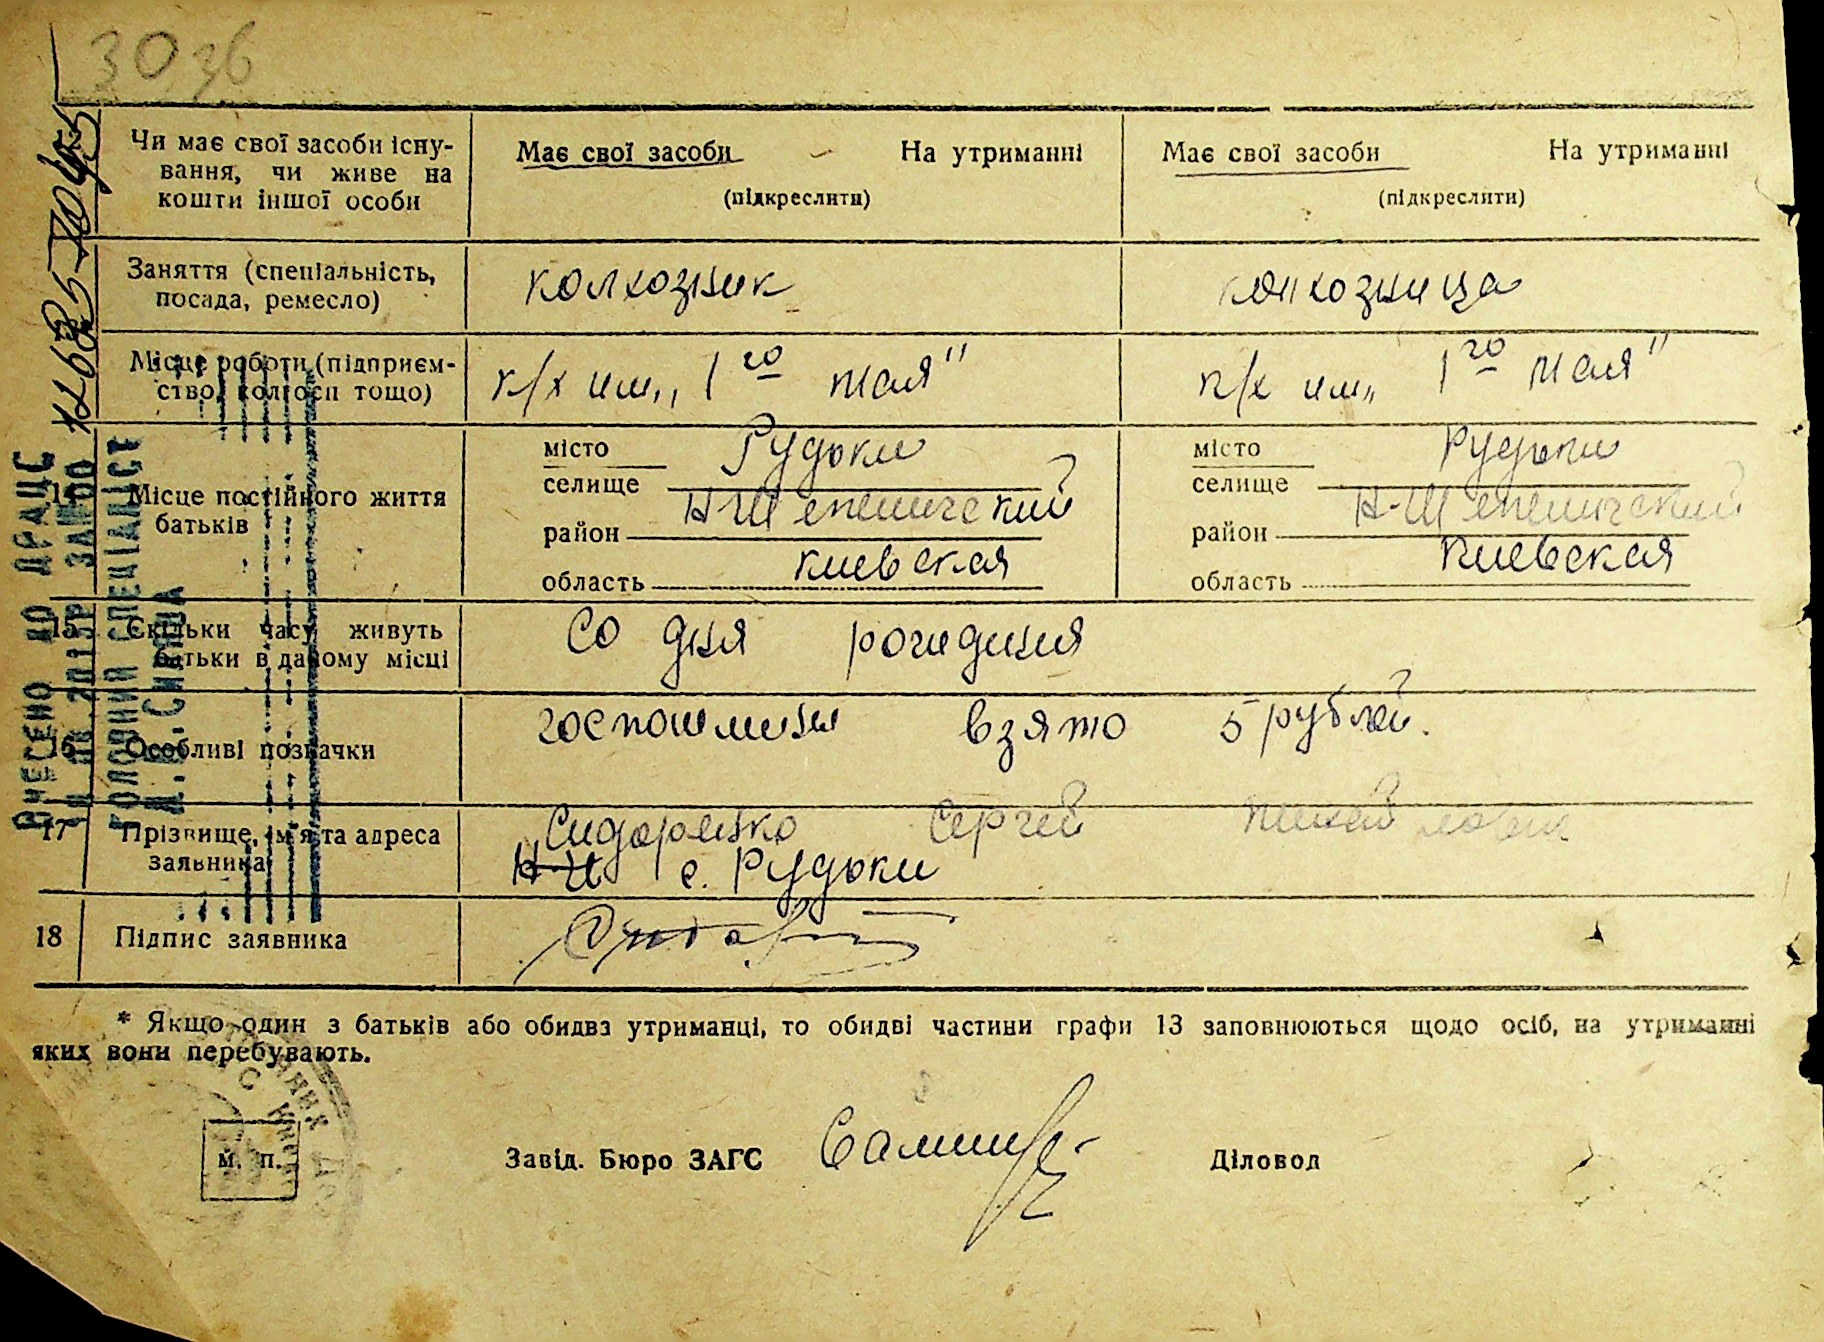 3036
Чи має свої засоби існу-
вання, чи живе на
кошти іншої особи
Має свої засоби На утриманні
(підкреслити)
Має свої засоби На утриманні
(підкреслити)
Заняття (спеціальність,
посада, ремесло)
колхозник
колхозница
Місце роботи (підприєм-
ство, колгосп тощо)
к/х им „ 1го мая"
к/х им „ 1го мая"
14
Місце постійного життя
батьків
місто
селище
Рудьки
район Н-Шепеличский
область киевская
місто
селище
Рудьки
район Н-Шепеличский
область киевская
15
Скільки часу живуть
батьки в даному місці
Со дня рождения
16
Особливі позначки
госпошлины взято 5 рублей.
17
Прізвище, ім'я та адреса
заявника
Сидоренко Сергей
с. Рудьки
18
Підпис заявника
* Якщо один з батьків або обидва утриманці, то обидві частини графи 13 заповнюються щодо осіб, на утриманні
яких вони перебувають.
м. п.
Завід. Бюро ЗАГС
Діловод
ВНЕСЕНО ДО ДРАЦС
ГОЛОВНИЙ СПЕЦІАЛІСТ